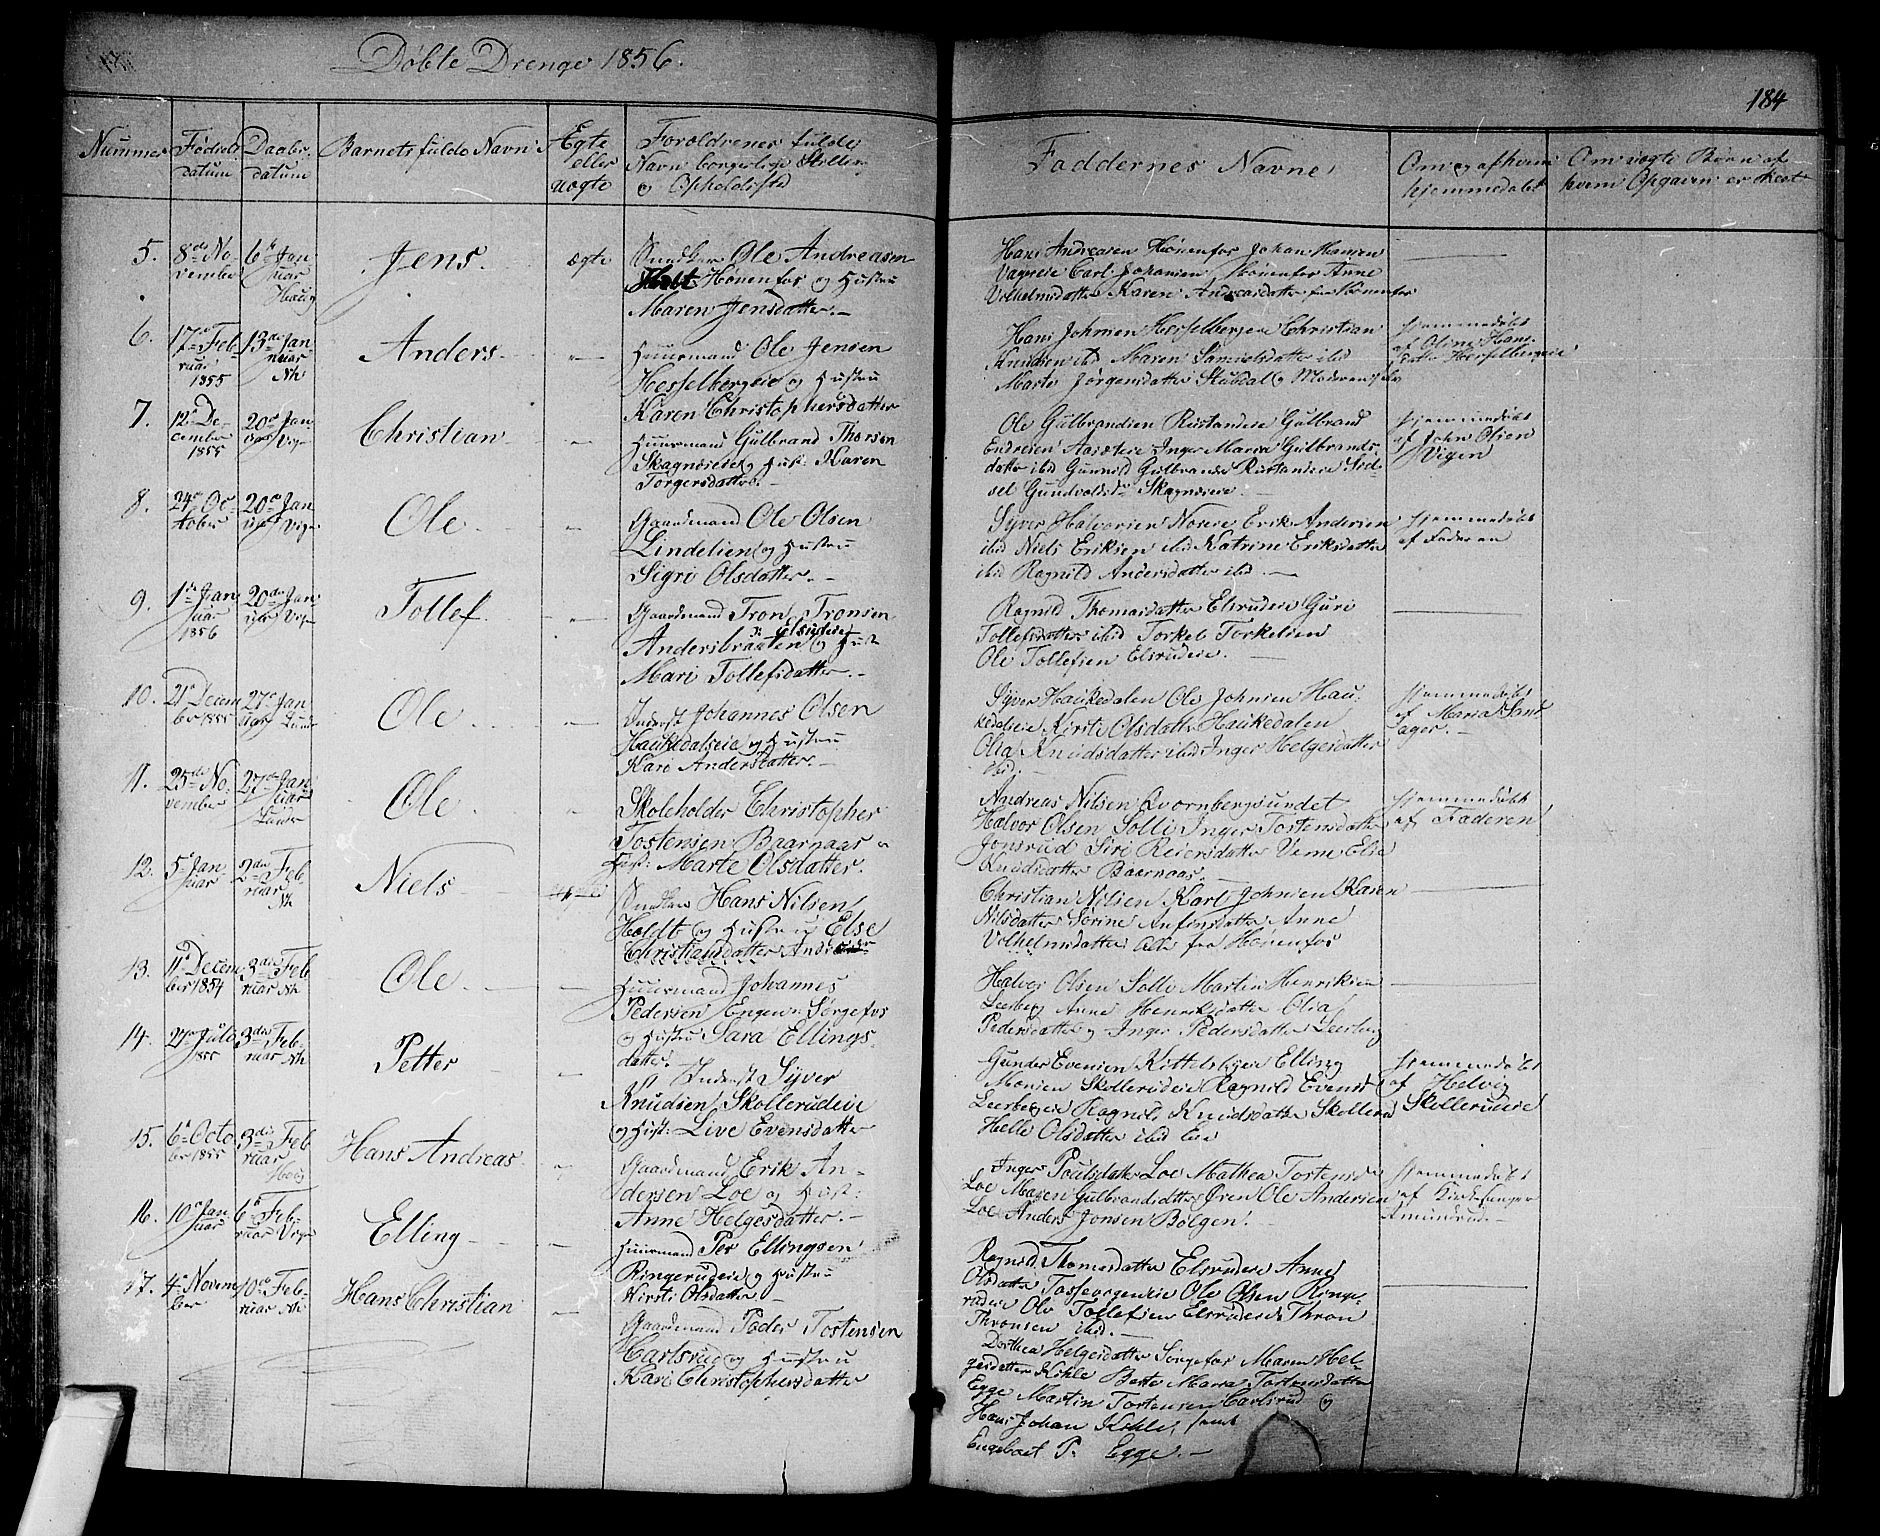 Döbte Drenge 1856.
184
Nummer
Fødsels
datum
Daabs
datum
Barnets fulde Navn
Ægte
eller
uægte
Foroldrenes fulde
Navn borgerlige Stilling
og Opholdsted
Faddernes Navne
Om og af hvem
hjemmedøbt
Om uægte Børn af
hvem Opgaven er skeet
5. 8de No
vember
6te Jan
uar
Haug
Jens
ægte
Ole Andreasen
Hønenfos og Hustru
Maren Jensdatter
Hans Andreasen Hønenfos Johan Hansen
Carl Johansen Hønenfos Anne
Vilhelmsdatter Karen Andreasdatter fra Hønenfos
6. 17de Feb
ruar
1855
13de Jan
nuar
Nh
Anders
Huusmand Ole Jensen
Hesselbergeie og Hustru
Karen Christophersdatter
Hans Johnsen Hesselbergeie Christian
Knudsen ibid Maren Samuelsdatter ibid
Marte Jørgensdatter Stubdal og Moderen selv
Hjemmedöbt
af Oline Hans
datter Hesselbergeie
7. 12te De
cember
1855
20de Jan
uar Vigr
Christian
Huusmand Gulbrand Thorsen
Skagnæseie og Hust: Karen
Torgersdatter
Ole Gulbrandsen Rustandeie Gulbrand
Endresen Inger Maria Gulbrands
datter ibid Gunnild Gulbrandsd Rustandeie Sid
sel Gundvoldsdr Skagnæseie
Hjemmedöbt
af John Olsen
Vigen
8. 24de Oc
tober
20de Jan
uar Vigr
Ole
Gaardmand Ole Olsen
Lindelien og Hustru
Sigri Olsdatter
Syver Halvorsen Noreie Erik Andersen
ibid Niels Eriksen ibid Katrine Eriksdatter
ibid Ragnild Andersdatter ibid
Hjemmedöbt
af Faderen
9. 1de Jan
uar
1856
20de Jan
uar Vigr
Tollef
Gaardmand Tron Tronsen
Elsrudeie
Andersbraaten og Hust
Mari Tollefsdatter
Ragnild Thomasdatter Elsrudeie Guri
Tollefsdatter ibid Torkel Torkelsen
Ole Tollefsen Elsrudeie
10. 21de Decem
ber 1855
27de Jan
uar Lunde
Ole
Inderst Johannes Olsen
Haukedalseie og Hustru
Kari Andersdatter
Syver Haukedalen Ole Johnsen Hau
kedalseie Kirsti Olsdatter Haukedalen
Olia Knudsdatter ibid Inger Helgesdatter
ibid
Hjemmedöbt
af Maria Sand
ager
11. 25de No
vember
27de Jan
uar
Lunde
Ole
Skoleholder Christopher
Tostensen Baarnaas og
Hust: Marte Olsdatter
Andreas Nilsen Qvernbergsundet
Halvor Olsen Solli Inger Tostensdatter
Jonsrud Siri Reiersdatter Verne Elie
Knudsdatter Baarnaas
Hjemmedöbt
af Faderen
12. 5te Jan
uar
2den Feb
ruar
Nh
Niels
Hans Nilsen
Holdt og Hustru Else
Christiansdatter
Christian Nilsen Karl Johnsen Karen
Nilsdatter Sorine Anfinsdatter Anne
Vilhelmsdatter alle fra Hønenfos
13. 11te Decem
ber 1854
3die Feb
ruar Nh
Ole
Huusmand Johannes
Pedersen Engen Sørgefos
og Hustru Sara Ellings
datter
Halvor Olsen Solli Martin Henriksen
Leerberg Anne Henriksdatter Olia
Pedersdatter og Inger Pedersdatter Leerberg
14. 27de Juli
1855
3die Feb
ruar Nh
Petter
Inderst Syver
Knudsen Skollerudeie
og Hust: Live Evensdatter
Gunder Evensen Kittelsbyeie Elling
Monsen Skollerudeie Ragnild Evensd
Leerbergeie Ragnild Knudsdatter Skollerud
Helli Olsdatter ibid
Hjemmedöbt
af Helvig
Skollerudeie
15. 6te Octo
ber 1855
3die Feb
ruar
Haug
Hans Andreas
Gaardmand Erik An
dersen Loe og Hust:
Anne Helgesdatter
Inger Poulsdatter Loe Mathea Tostensdr
Loe Maren Gulbrandsdatter Ören Ole Andersen
Loe Anders Jonsen Bölgen
Hjemmedöbt
af Kirkesanger
Amundrud
16. 10de Jan
uar
6te Feb
ruar Vigr
Elling
Huusmand Per Ellingsen
Ringerudeie og Hustru
Kirsti Olsdatter
Ragnild Thomasdatter Elsrudeie Anne
Olsdatter Ole Olsen Ringe
rudeie Ole Tollefsen Elsrudeie Thron
Thronsen ibid
17. 4de Novem
ber
10de Feb
ruar Nh
Hans Christian
Gaardmand Peder Tostensen
Karlsrud og Hustru
Kari Christophersdatter
Dorthea Helgesdatter Sørgefos Maren Hel
gesdatter Kihle Berte Maria Tostensdatter
Egge Martin Tostensen Carlsrud og
Hans Johan Kihle, samt
Engebret P. Egge.